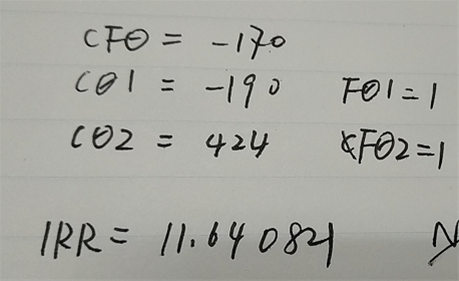 CF0 = -170
C01 = -190 F01=1
C02 = 424 F02=1
IRR = 11.640821 N